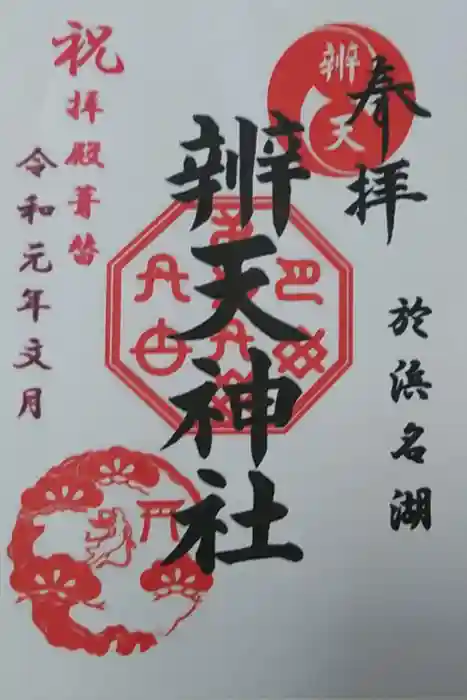 奉拝
於浜名湖
辨天
辨天神社
祝
拝殿葺替
令和元年文月